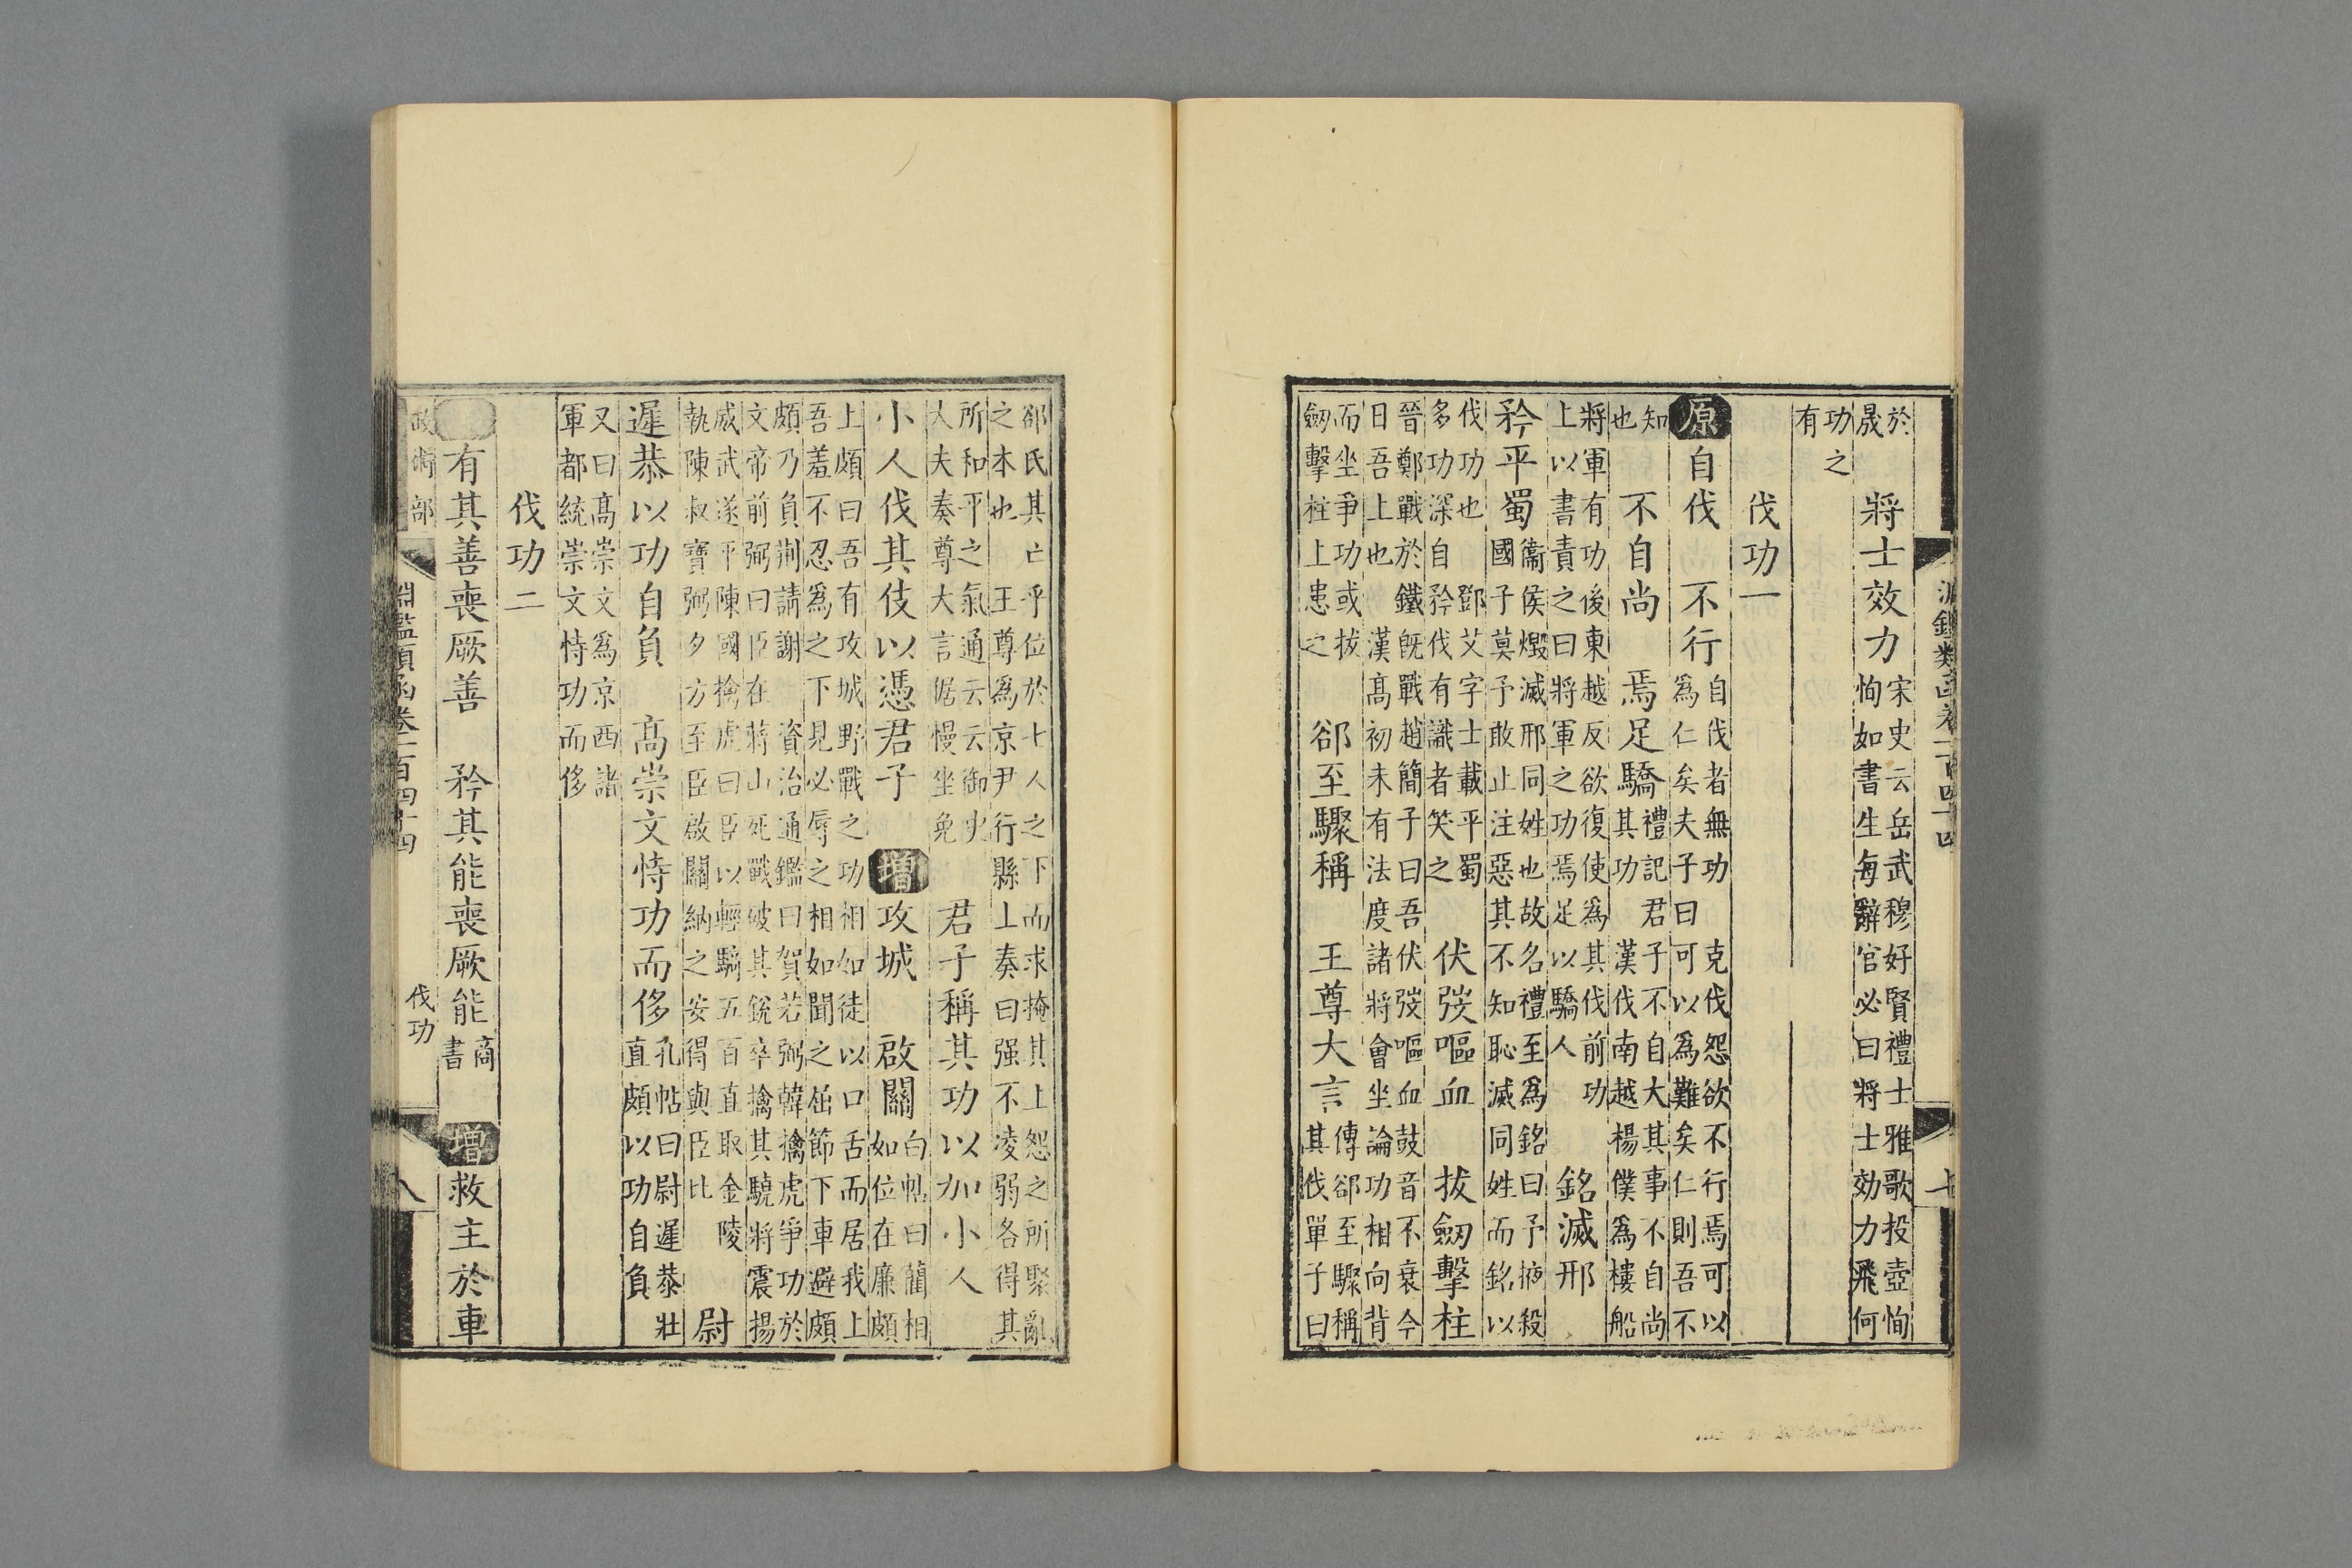 於
晟　將士效力　宋史云岳武穆好賢禮士雅歌投壺恂
恂如書生每辭官必曰將士効力飛何
功之
有
伐功一
原自伐　不行　自伐者無功　克伐怨欲不行焉可以
為仁矣夫子曰可以為難矣仁則吾不
知
也　不自尚　焉足驕　禮記君子不自大其事不自尚
其功　漢伐南越楊僕為樓船
將軍有功後東越反欲復使為其伐前功
上以書責之曰將軍之功焉足以驕人　銘滅邢
矜平蜀　衞侯燬滅邢同姓也故名禮至為銘曰予掖殺
國子莫予敢止注惡其不知恥滅同姓而銘以
伐功也　鄧艾字士載平蜀
多功深自矜伐有識者笑之　伏弢嘔血　拔劒擊柱
晉鄭戰於鐵既戰趙簡子曰吾伏弢嘔血鼓音不衰今
日吾上也　漢髙初未有法度諸將會坐論功相向背
而坐爭功或拔
劒擊柱上患之　郤至驟稱　王尊大言　傳郤至驟稱
其伐單子曰
淵鑑類函卷一百四十四
郤氏其亡乎位於七人之下而求掩其上怨之所聚亂
之本也　王尊為京尹行縣上奏曰强不凌弱各得其
所和平之氣通云云御史
大夫奏尊大言倨慢坐免　君子稱其功以加小人
小人伐其伎以憑君子　增攻城　啟關　白帖曰藺相
如位在廉頗
上頗曰吾有攻城野戰之功相如徒以口舌而居我上
吾羞不忍為之下見必辱之相如聞之屈節下車避頗
頗乃負荆請謝　資治通鑑曰賀若弼韓擒虎爭功於
文帝前弼曰臣在蔣山死戰破其銳卒擒其驍將震揚
威武遂平陳國擒虎曰臣以輕騎五百直取金陵
執陳叔寶弼夕方至臣啟關納之安得與臣比　尉
遲恭以功自負　髙崇文恃功而侈　孔帖曰尉遲恭壯
直頗以功自負
又曰髙崇文為京西諸
軍都統崇文恃功而侈
伐功二
有其善喪厥善　矜其能喪厥能　商
書　增救主於車
政術部　淵鑑類函卷一百四十四　伐功　八